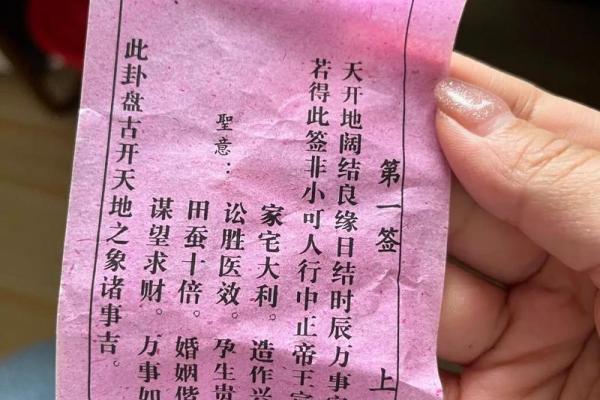 第一签 上
天开地阔结良缘日结时辰万事
若得此签非小可人行中正帝王
聖意：
家宅大利。造作
讼胜医效。孕生贵
田蚕十倍。婚姻偕
谋望求财。万事如
此卦盘古开天地之象诸事吉。